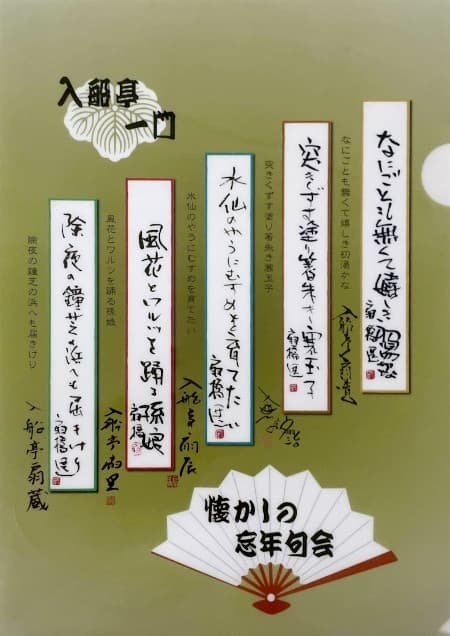 入船亭
一門
なにごとも無くて嬉しき初湯かな
扇橋選
なにごとも無くて嬉しき初湯かな
突きくずす塗り箸朱き寒玉子
扇橋選
突きくずす塗り箸朱き寒玉子
水仙のやうにむすめを育てたい
扇橋選
水仙のやうにむすめを育てたい
入船亭扇辰
風花とワルツを踊る孫娘
扇橋選
風花とワルツを踊る孫娘
入船亭扇里
除夜の鐘芝の浜へも届きけり
扇橋選
除夜の鐘芝の浜へも届きけり
入船亭扇蔵
懐かしの
忘年句会